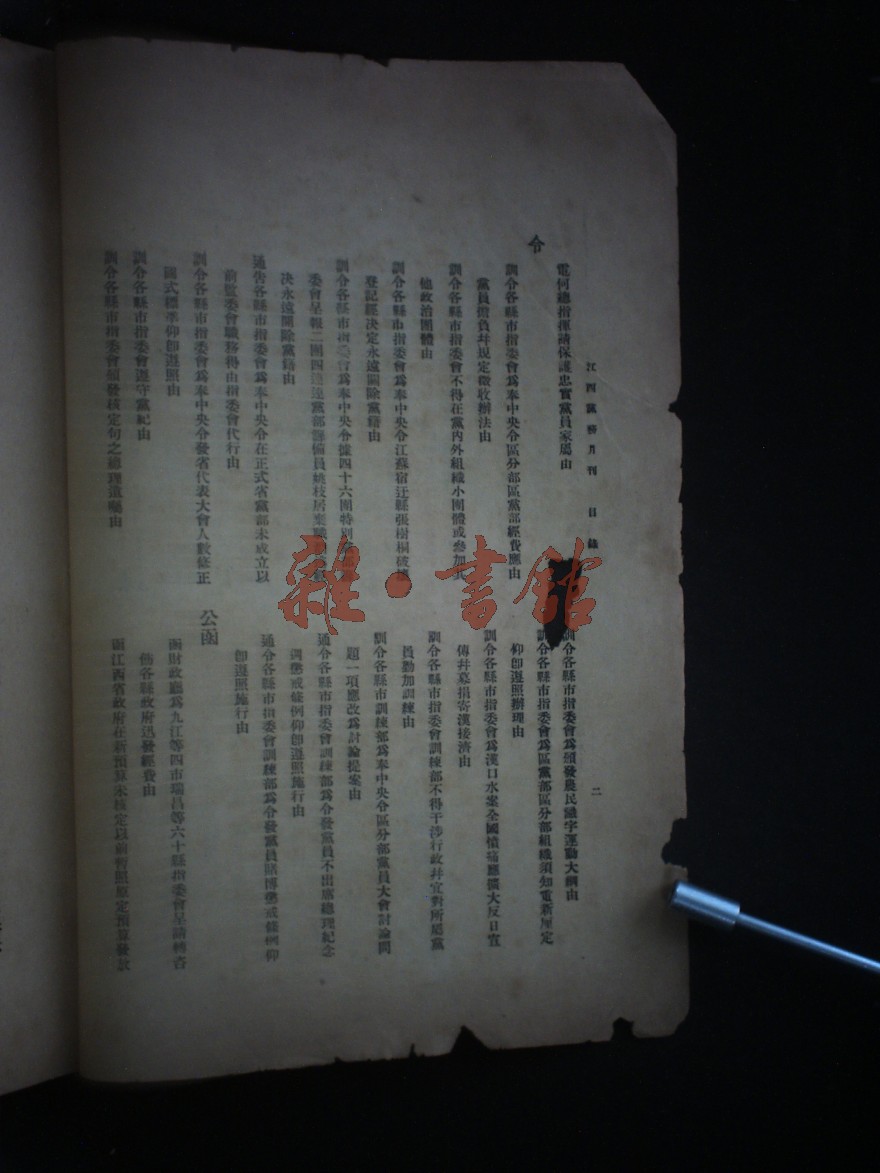 江西黨務月刊 目錄 二
電何總指揮請保護忠實黨員家屬由
令
訓令各縣市指委會爲奉中央令區分部區黨部經費應由
黨員擔負幷規定徵收辦法由
訓令各縣市指委會不得在黨內外組織小團體或參加其
他政治團體由
訓令各縣市指委會爲奉中央令江蘇宿迁縣張樹桐破壞
登記經決定永遠開除黨籍由
訓令各縣市指委會爲奉中央令據四十六團特別
委會呈報二團四連連黨部籌備員姚枝居棄職
决永遠開除黨籍由
通告各縣市指委會爲奉中央令在正式省黨部未成立以
前監委會職務得由指委會代行由
訓令各縣市指委會爲奉中央令發省代表大會人數修正
圖式標準仰卽遵照由
訓令各縣市指委會遵守黨紀由
訓令各縣市指委會頒發核定句之總理遺囑由
訓令各縣市指委會爲頒發農民識字運動大綱由
訓令各縣市指委會爲區黨部區分部組織須知重新厘定
仰卽遵照辦理由
訓令各縣市指委會爲漢口水案全國憤痛應擴大反日宣
傳幷募捐寄漢接濟由
訓令各縣市指委會訓練部不得干涉行政幷宜對所屬黨
員勤加訓練由
訓令各縣市訓練部爲奉中央令區分部黨員大會討論問
題一項應改爲討論提案由
通令各縣市指委會訓練部爲令發黨員不出席總理紀念
週懲戒條例仰卽遵照施行由
通令各縣市指委會訓練部爲令發黨員賭博懲戒條例仰
卽遵照施行由
公函
函財政廳爲九江等四市瑞昌等六十縣指委會呈請轉咨
飭各縣政府迅發經費由
函江西省政府在新預算未核定以前暫照原定預算發款
雜·書館